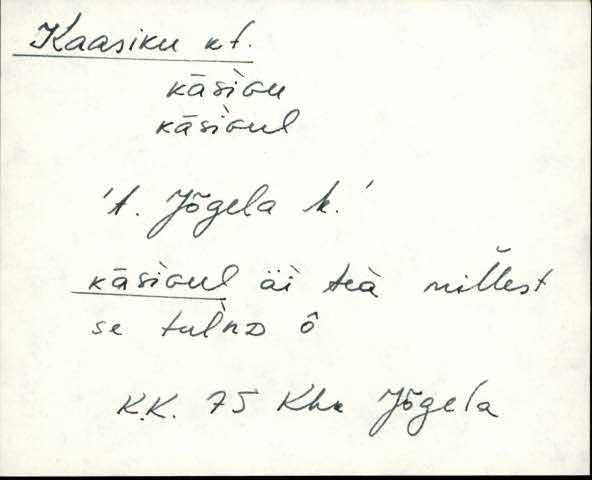 Kaasiku kt.
kāsìɢu
kāsìɢul
't. Jõgela k.'
kāsiɢul äì teà millest
se tulǹᴅ ô
K.K. 75 Khn Jõgela